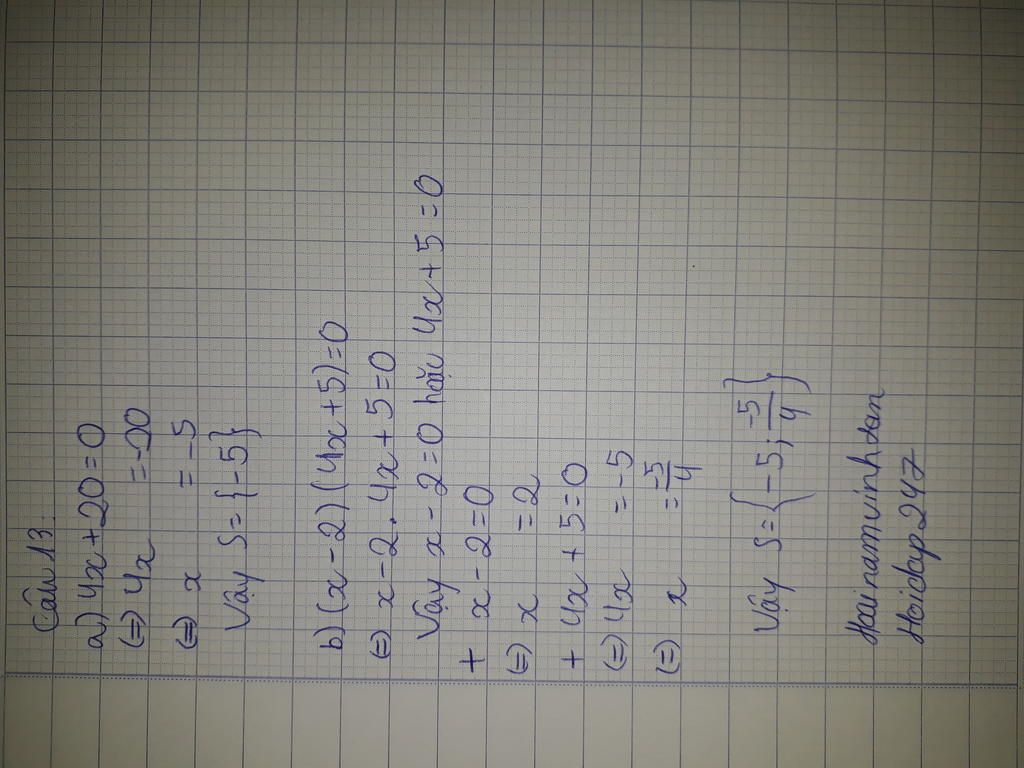 Câu 13:
a) 4x + 20 = 0
(=) 4x = -20
(=) x = -5
Vậy S = {-5}
b) (x - 2) (4x + 5) = 0
(=) x - 2 . 4x + 5 = 0
Vậy x - 2 = 0 hoặc 4x + 5 = 0
+ x - 2 = 0
(=) x = 2
+ 4x + 5 = 0
(=) 4x = -5
(=) x = -5/4
Vậy S = {-5; -5/4}
Hoainamvinhdan
Hoidap247